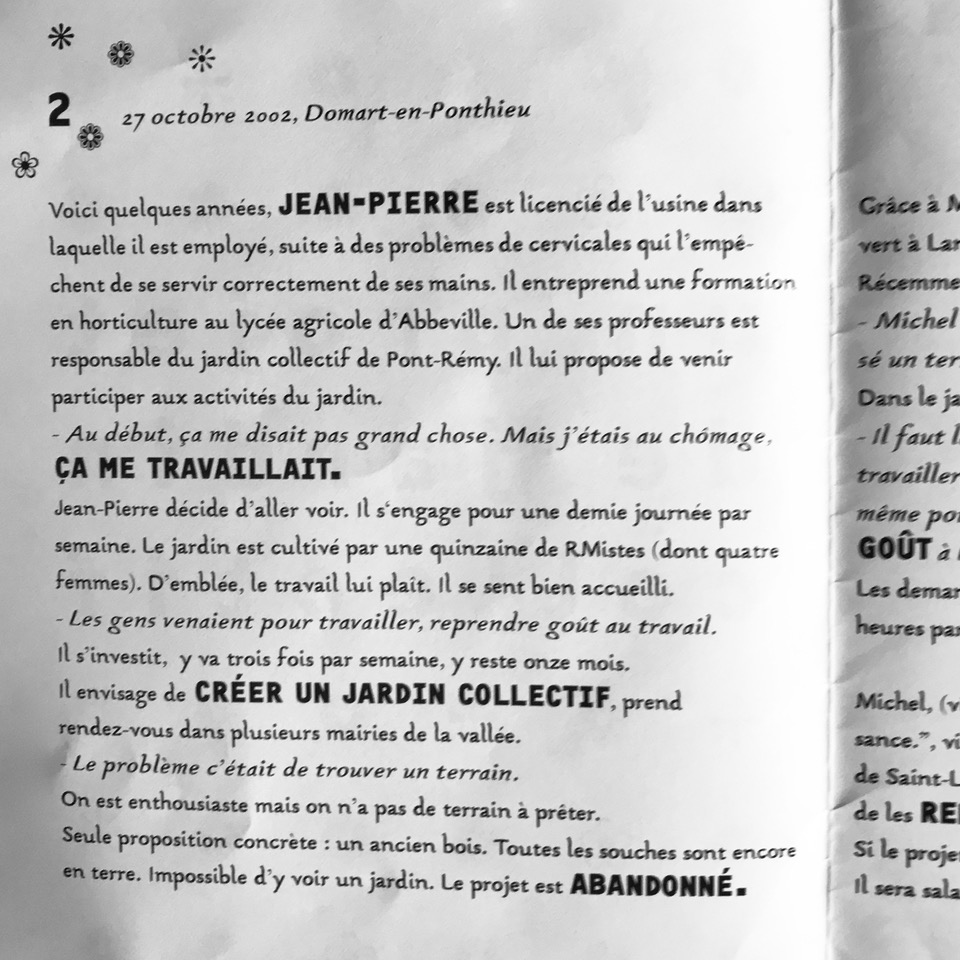 2 27 octobre 2002, Domart-en-Ponthieu
Voici quelques années, JEAN-PIERRE est licencié de l'usine dans
laquelle il est employé, suite à des problèmes de cervicales qui l'empê-
chent de se servir correctement de ses mains. Il entreprend une formation
en horticulture au lycée agricole d'Abbeville. Un de ses professeurs est
responsable du jardin collectif de Pont-Rémy. Il lui propose de venir
participer aux activités du jardin.
- Au début, ça me disait pas grand chose. Mais j'étais au chômage,
ÇA ME TRAVAILLAIT.
Jean-Pierre décide d'aller voir. Il s'engage pour une demie journée par
semaine. Le jardin est cultivé par une quinzaine de RMistes (dont quatre
femmes). D'emblée, le travail lui plaît. Il se sent bien accueilli.
- Les gens venaient pour travailler, reprendre goût au travail.
Il s'investit, y va trois fois par semaine, y reste onze mois.
Il envisage de CRÉER UN JARDIN COLLECTIF, prend
rendez-vous dans plusieurs mairies de la vallée.
- Le problème c'était de trouver un terrain.
On est enthousiaste mais on n'a pas de terrain à prêter.
Seule proposition concrète : un ancien bois. Toutes les souches sont encore
en terre. Impossible d'y voir un jardin. Le projet est ABANDONNÉ.
Grâce à
vert à
- Michel
sé un
Dans le
- Il faut
travailler
même
GOÛT à
Les
heures
Michel,
sance.",
de
de les
Si le
Il sera